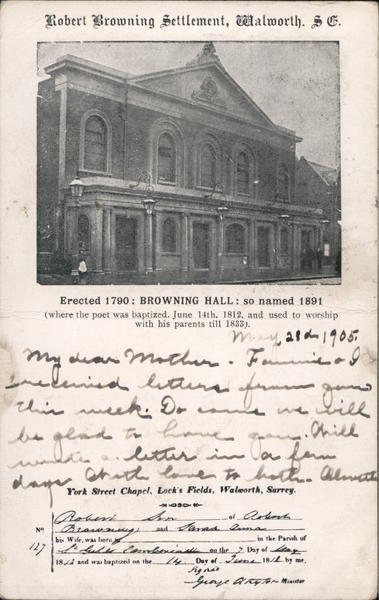 Robert Browning Settlement, Walworth. S E.
Erected 1790: BROWNING HALL: so named 1891
(where the poet was baptized. June 14th. 1812, and used to worship
with his parents till 1833).
May 23d 1905.
My dear Mother. Fannie & I
received letters from you
this week. Do come we will
be glad to have you. Will
write a letter in a few
days With love to both.
York Street Chapel, Lock's Fields, Walworth, Surrey.
Robert Son of Robert
No Browning and Sarah Anna
127 his Wife, was born in the Parish of
St Giles Camberwell on the 7 Day of May
1812 and was baptized on the 14 Day of June 1812 by me,
Signed
George Minister